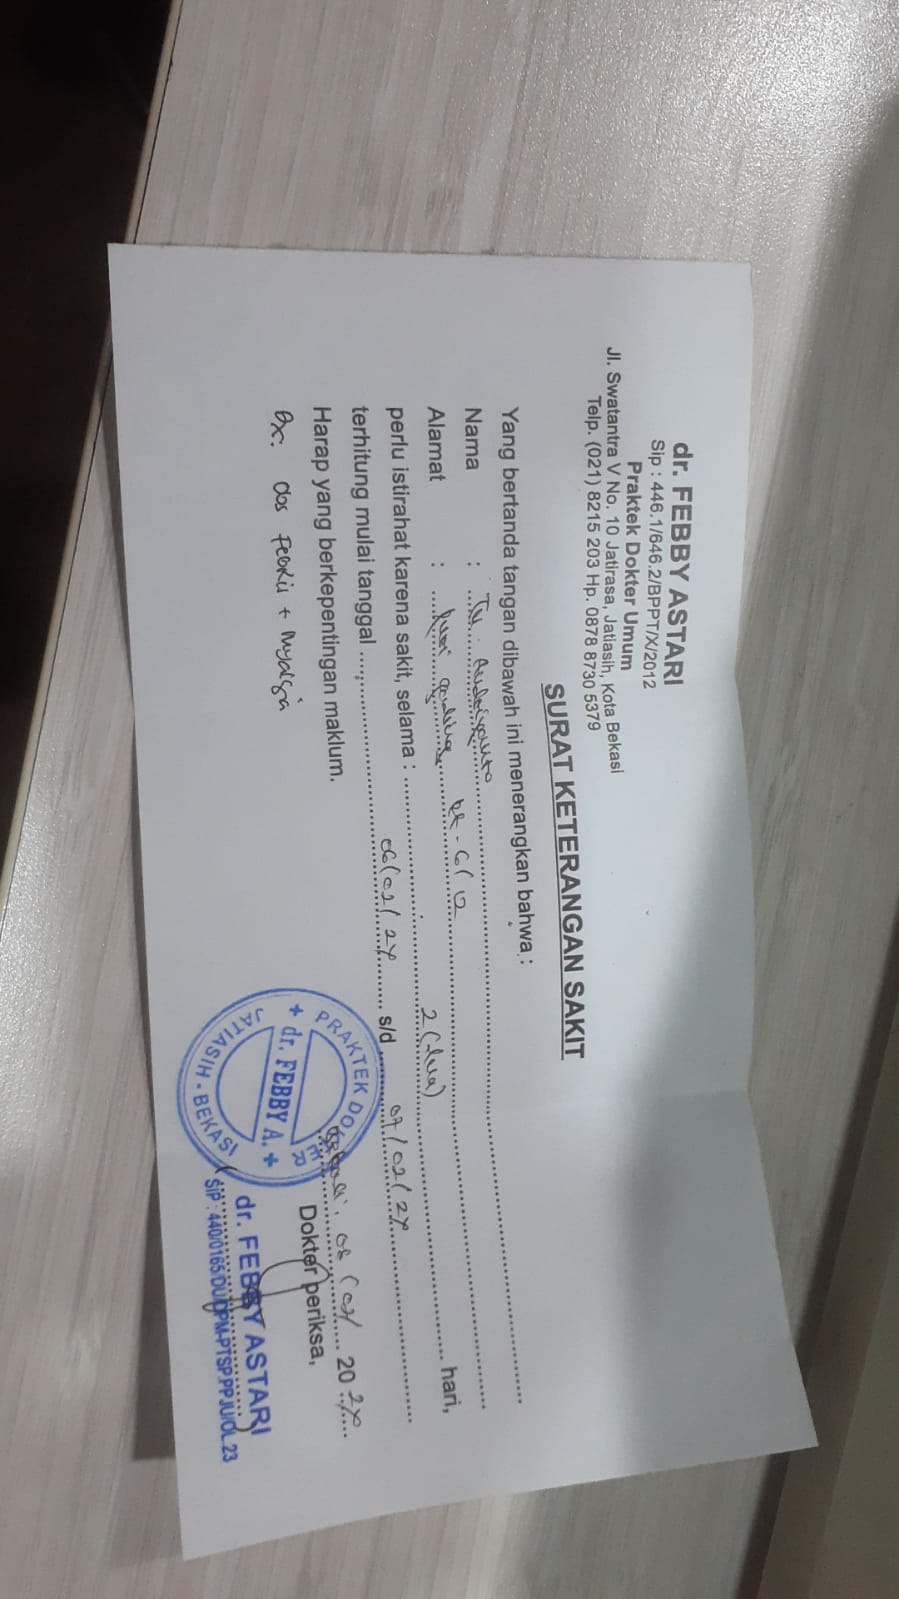 dr. FEBBY ASTARI
Sip : 446.1/646.2/BPPT/X/2012
Praktek Dokter Umum
Jl. Swatantra V No. 10 Jatirasa, Jatiasih, Kota Bekasi
Telp. (021) 8215 203 Hp. 0878 8730 5379
SURAT KETERANGAN SAKIT
Yang bertanda tangan dibawah ini menerangkan bahwa :
Nama : Tn.
Alamat :
perlu istirahat karena sakit, selama : 2 (dua) hari,
terhitung mulai tanggal 06/02/24 s/d 07/02/24
Harap yang berkepentingan maklum.
Dx: obs Febris + Myalgia
20 24
Dokter periksa,
PRAKTEK DOKTER
dr. FEBBY A.
JATIASIH - BEKASI
dr. FEBBY ASTARI
SIP : 440/0165/DU/DPM-PTSP.PPJU/OL.23